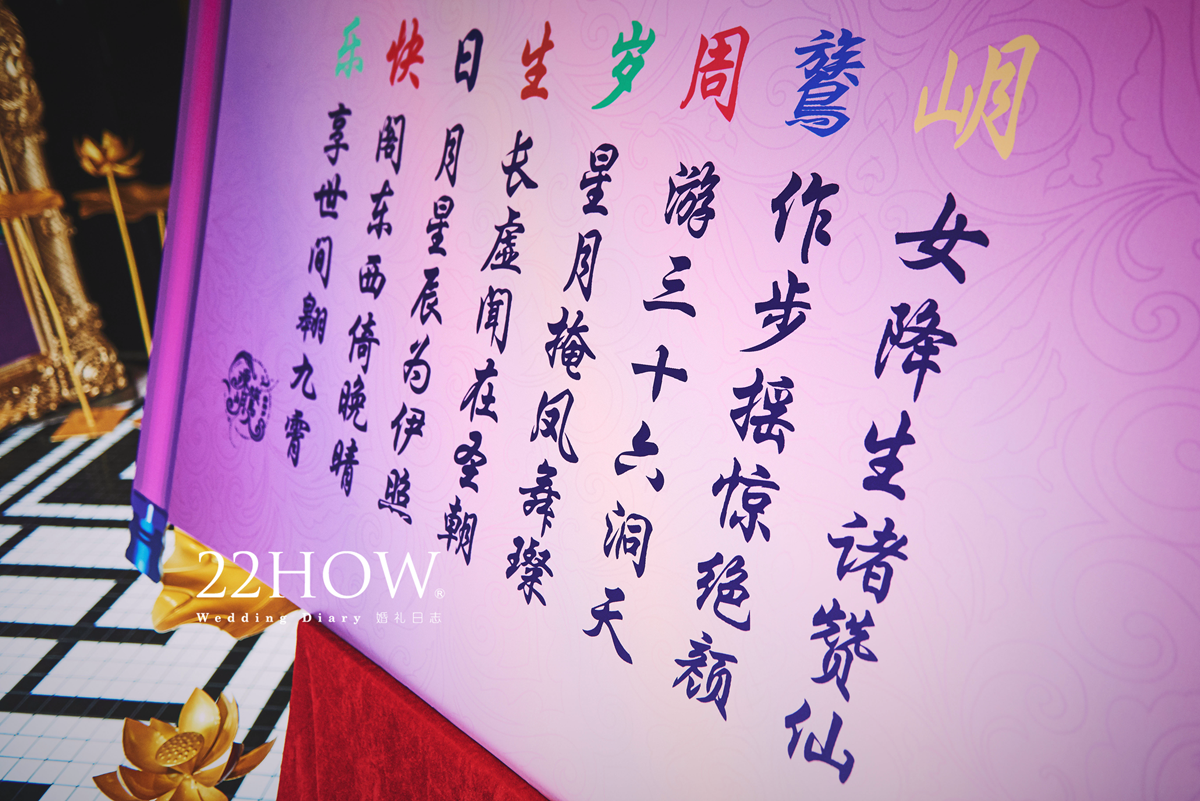 岄女降生诸赞仙
鷟作步摇惊绝颜
周游三十六洞天
岁星月掩凤舞璨
生长虚闻在圣朝
日月星辰为伊照
快阁东西倚晚晴
乐享世间翱九霄
22HOW®
Wedding Diary 婚礼日志